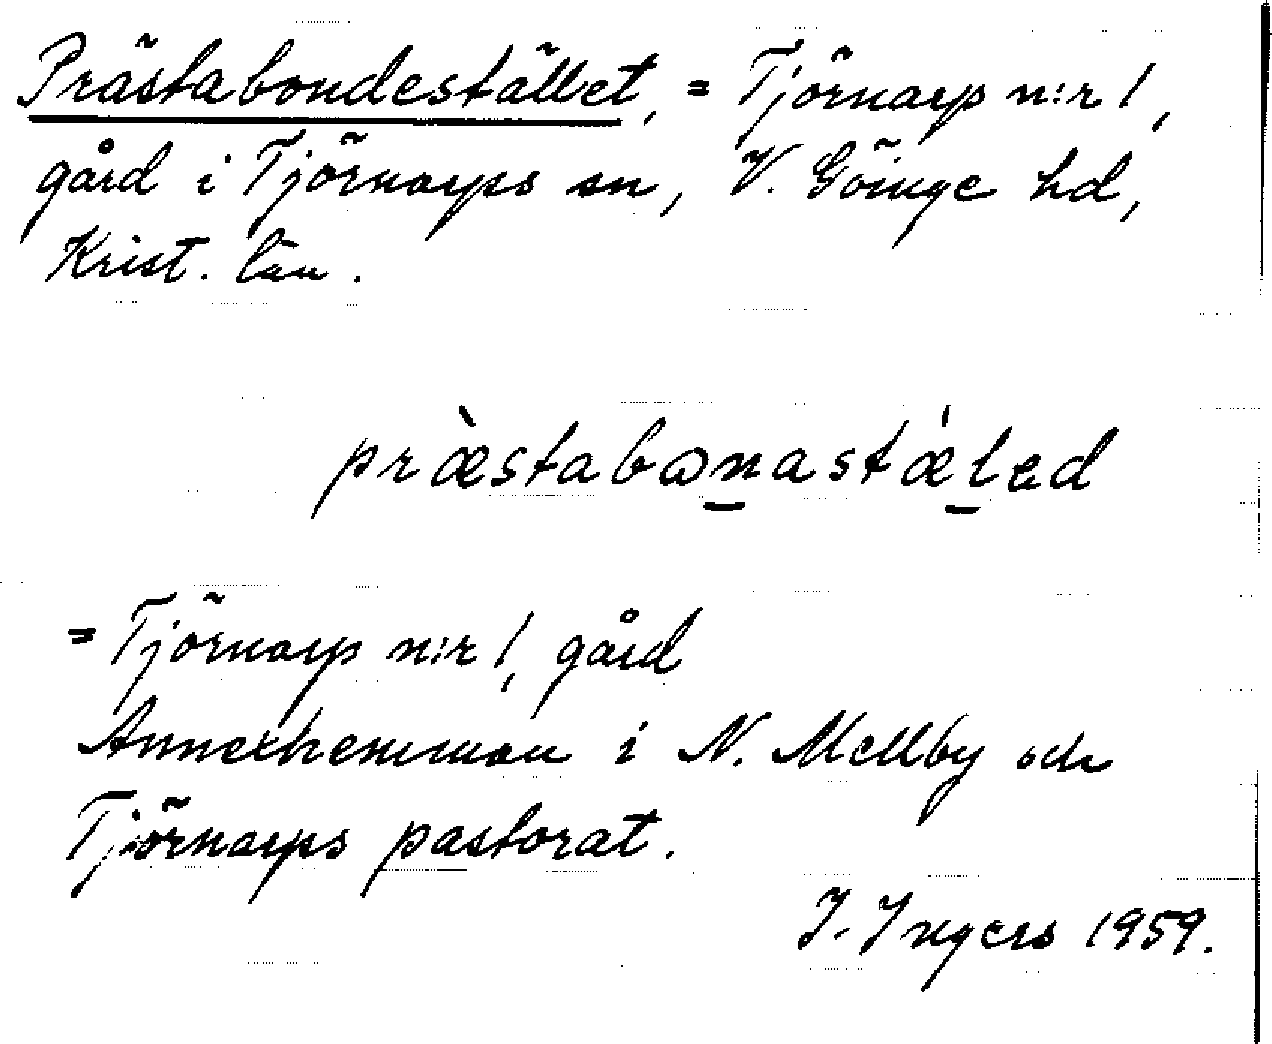 Prästabondestället, = Tjörnarp n:r 1,
gård i Tjörnarps sn, V. Göinge hd,
Krist. län.
præ̀stabωn̠astǽl̠ed
= Tjörnarp n:r 1, gård
Annexhemman i N. Mellby och
Tjörnarps pastorat.
I. Ingers 1959.